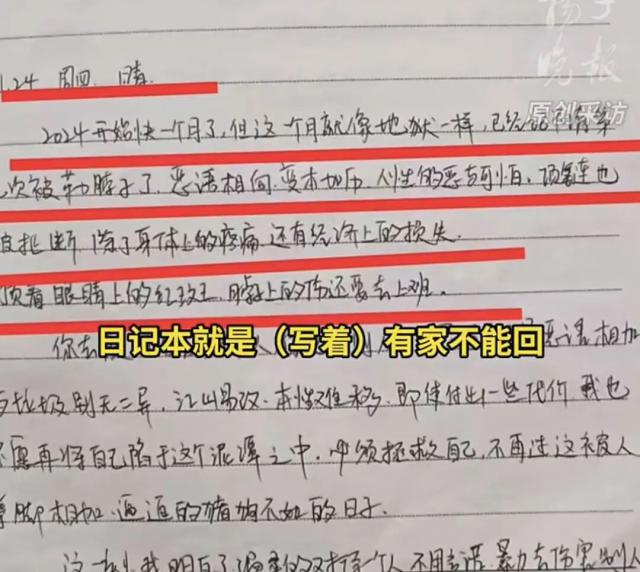 扬子晚报
原创采访
1.24 周四 晴
2024开始快一个月了,但这一个月就像地狱一样,已经记不清第
次被勒脖子了,恶语相向,变本加厉,人性的恶真可怕,项链也
被扯断,除了身体上的疼痛,还有经济上的损失
顶着眼睛上的红斑,脖子上的伤还要去上班。
日记本就是(写着)有家不能回
你 恶语相加
与垃圾别无二异,江山易改,本性难移,即使付出一些代价,我也
不愿再将自己陷于这个泥潭之中,必须拯救自己,不再过这被人
拳脚相加,逼迫的猪狗不如的日子.
这一刻我明白了 个人,不用言语,暴力去伤害别人